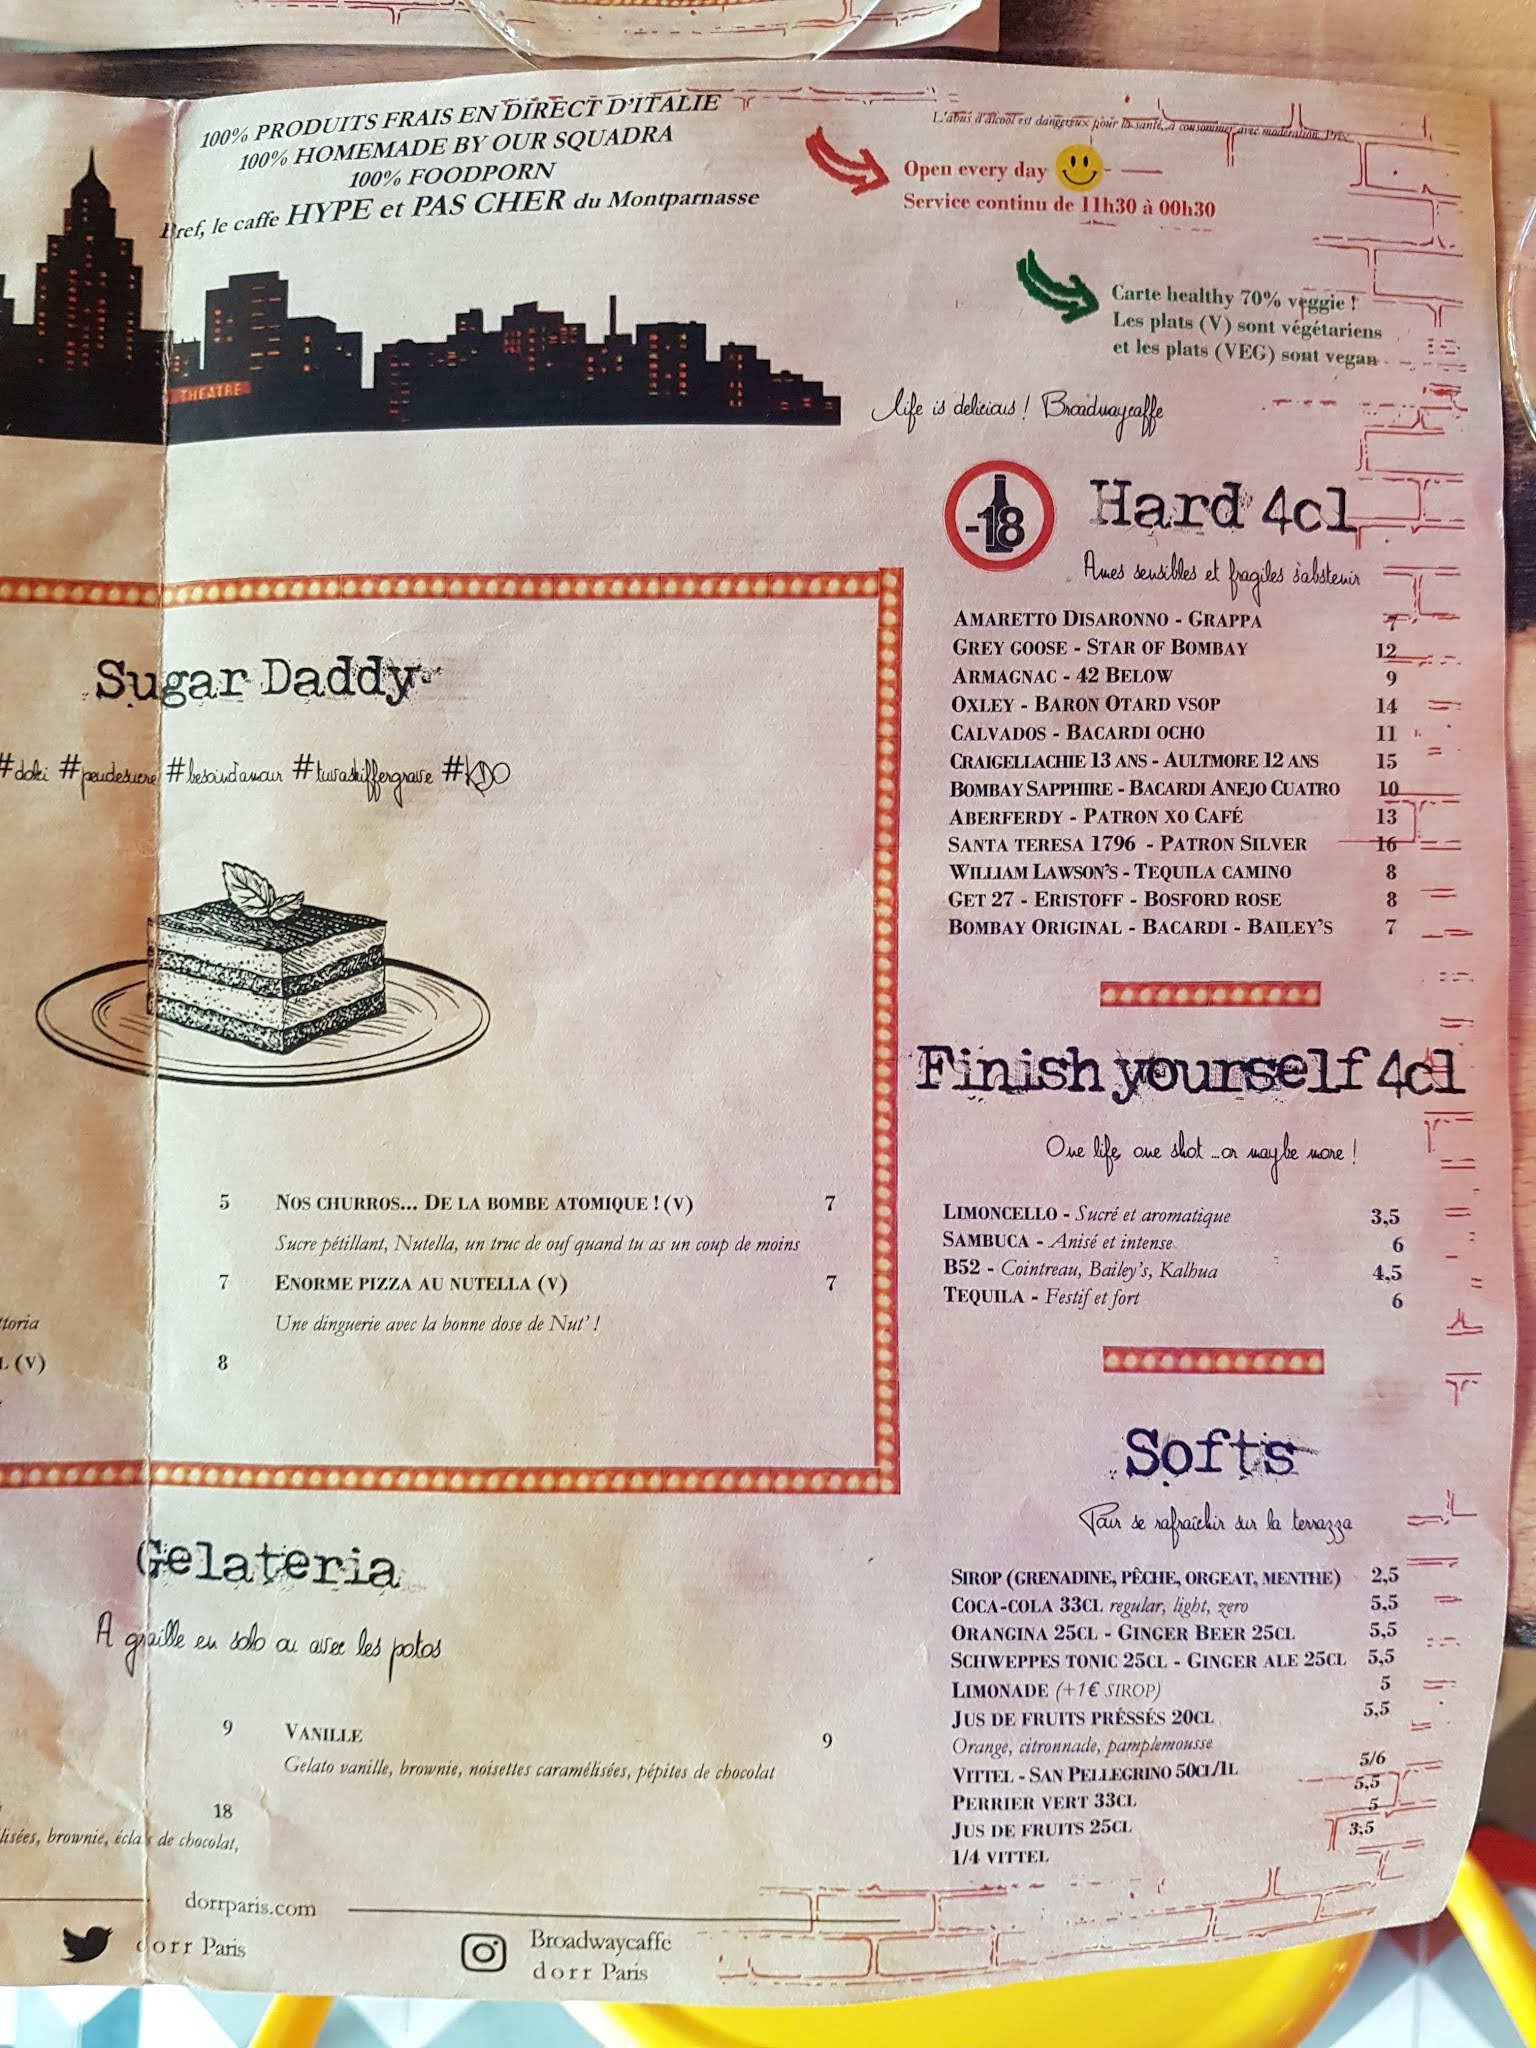 100% PRODUITS FRAIS EN DIRECT D'ITALIE
100% HOMEMADE BY OUR SQUADRA
100% FOODPORN
Bref, le caffe HYPE et PAS CHER du Montparnasse
THEATRE
L'abus d'alcool est dangereux pour la santé, à consommer avec modération. Prix
Open every day
Service continu de 11h30 à 00h30
Carte healthy 70% veggie !
Les plats (V) sont végétariens
et les plats (VEG) sont vegan
life is delicious ! Broadwaycaffe
Sugar Daddy
#doki #peudesucre #besoindamour #tuvaskiffergrave #KDO
5
NOS CHURROS... DE LA BOMBE ATOMIQUE ! (V) 7
Sucre pétillant, Nutella, un truc de ouf quand tu as un coup de moins
7
ENORME PIZZA AU NUTELLA (V) 7
Une dinguerie avec la bonne dose de Nut' !
ttoria
L (V) 8
Gelateria
A graille en solo ou avec les potos
9
VANILLE 9
Gelato vanille, brownie, noisettes caramélisées, pépites de chocolat
18
lisées, brownie, éclats de chocolat,
dorrparis.com
dorr Paris
Broadwaycaffe
dorr Paris
-18
Hard 4cl
Ames sensibles et fragiles s'abstenir
AMARETTO DISARONNO - GRAPPA 7
GREY GOOSE - STAR OF BOMBAY 12
ARMAGNAC - 42 BELOW 9
OXLEY - BARON OTARD VSOP 14
CALVADOS - BACARDI OCHO 11
CRAIGELLACHIE 13 ANS - AULTMORE 12 ANS 15
BOMBAY SAPPHIRE - BACARDI ANEJO CUATRO 10
ABERFERDY - PATRON XO CAFÉ 13
SANTA TERESA 1796 - PATRON SILVER 16
WILLIAM LAWSON'S - TEQUILA CAMINO 8
GET 27 - ERISTOFF - BOSFORD ROSE 8
BOMBAY ORIGINAL - BACARDI - BAILEY'S 7
Finish yourself 4cl
One life, one shot ...or maybe more !
LIMONCELLO - Sucré et aromatique 3,5
SAMBUCA - Anisé et intense 6
B52 - Cointreau, Bailey's, Kalhua 4,5
TEQUILA - Festif et fort 6
Softs
Pour se rafraîchir sur la terrazza
SIROP (GRENADINE, PÊCHE, ORGEAT, MENTHE) 2,5
COCA-COLA 33CL regular, light, zero 5,5
ORANGINA 25CL - GINGER BEER 25CL 5,5
SCHWEPPES TONIC 25CL - GINGER ALE 25CL 5,5
LIMONADE (+1€ SIROP) 5
JUS DE FRUITS PRÉSSÉS 20CL 5,5
Orange, citronnade, pamplemousse
VITTEL - SAN PELLEGRINO 50CL/1L 5/6
PERRIER VERT 33CL 5,5
JUS DE FRUITS 25CL 5
1/4 VITTEL 3,5